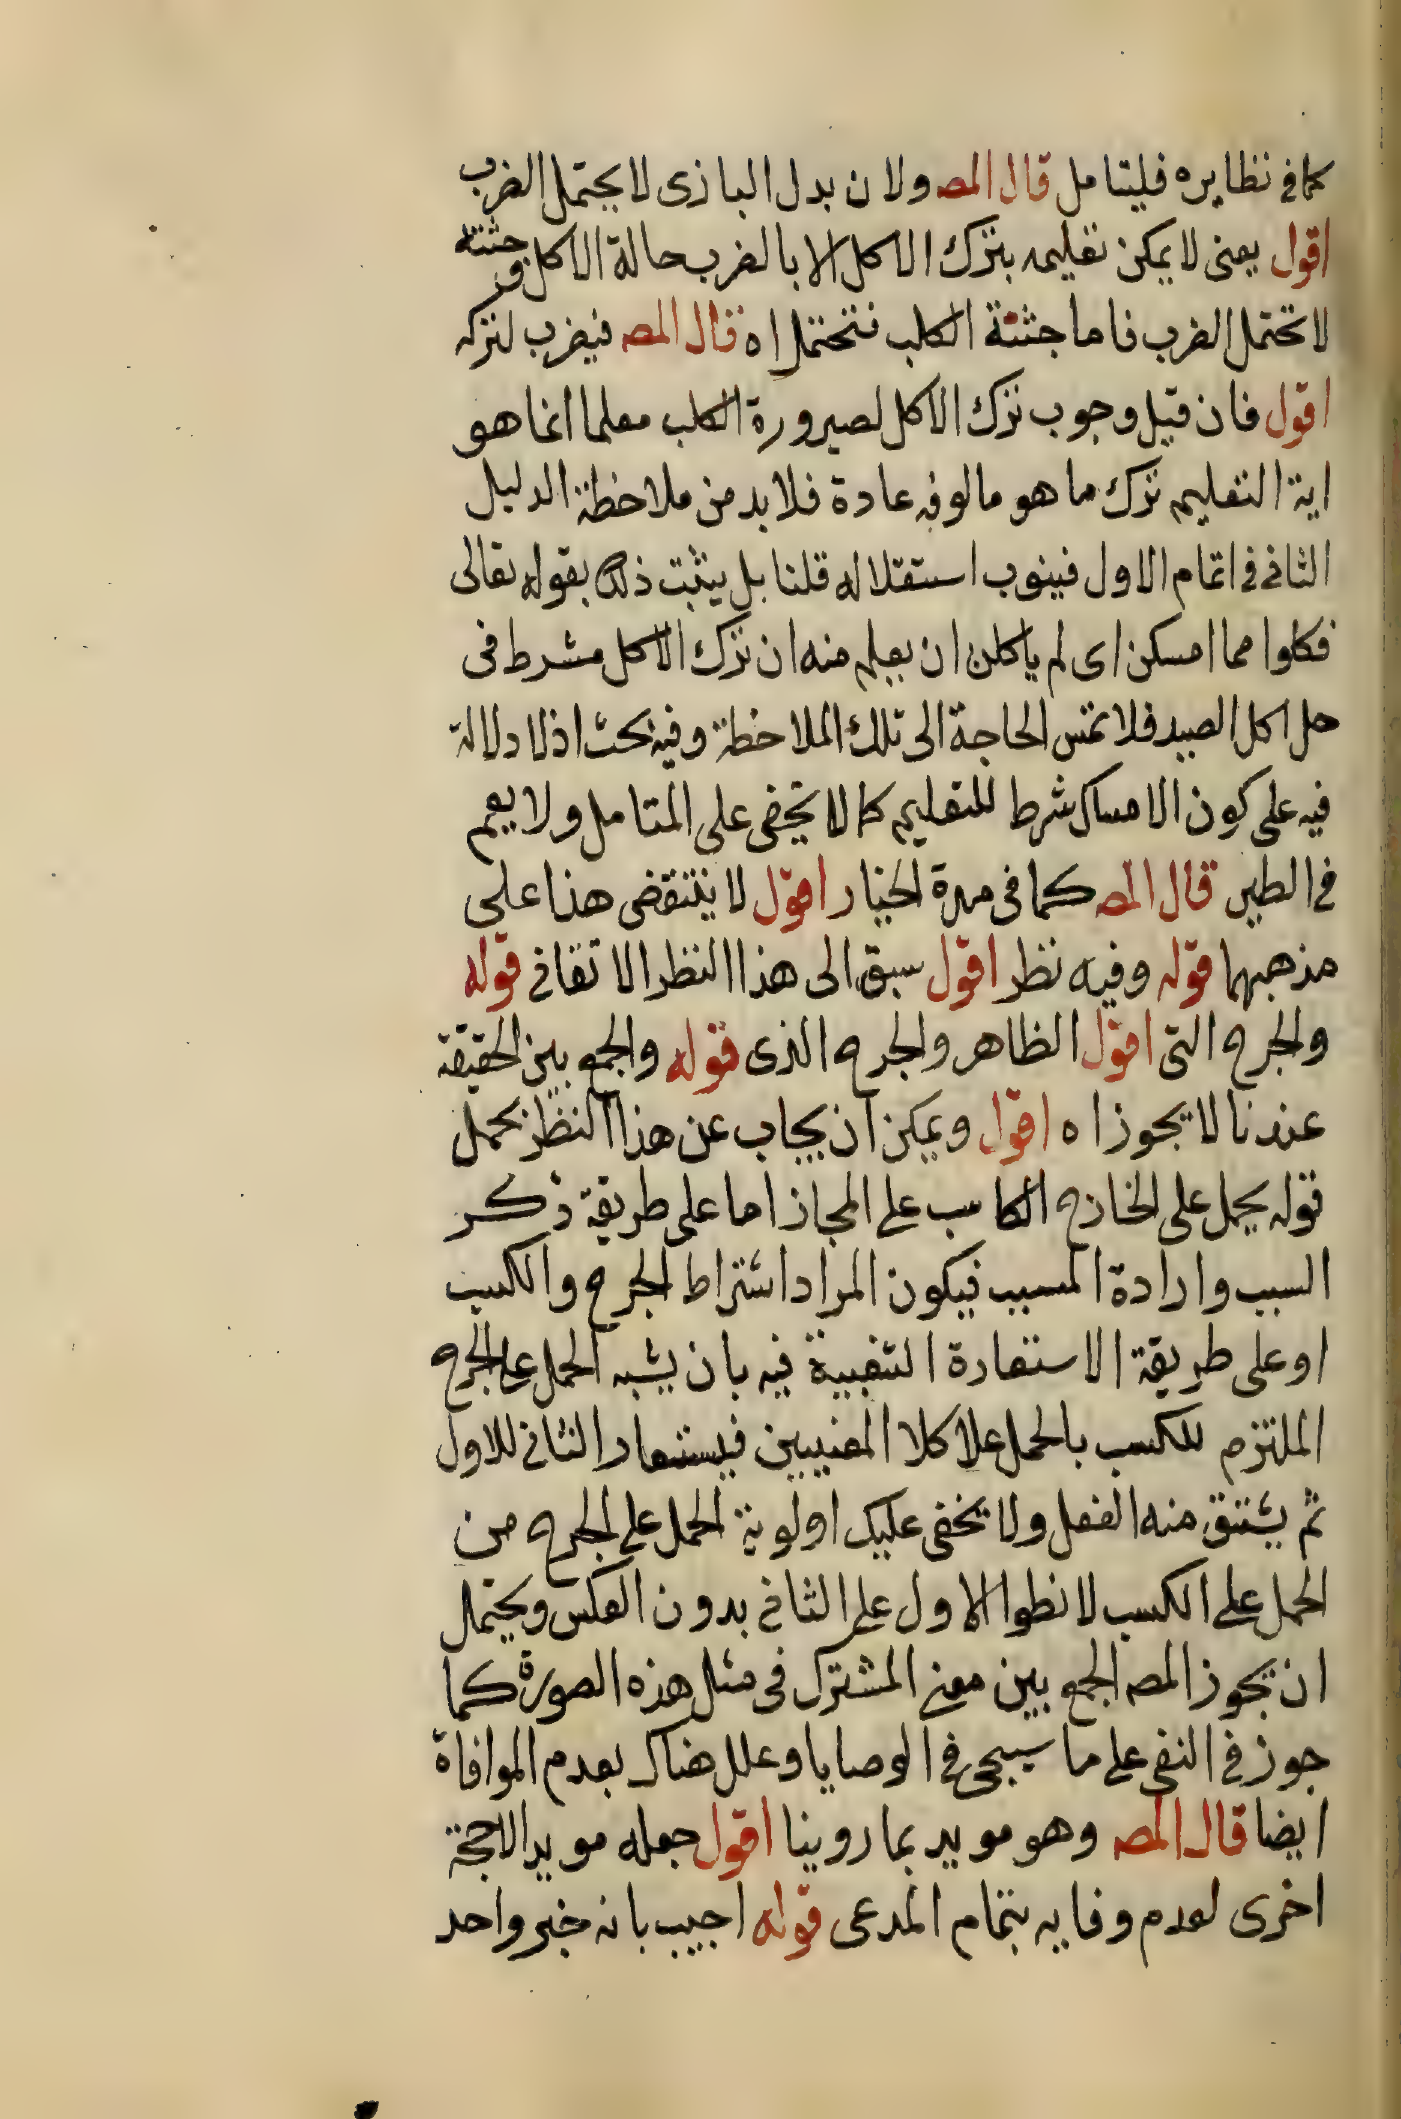 كما فى نظايره فليتامل قال المصـ ولان بدل البازى لا يحتمل الضرب
اقول يعنى لا يمكن تعليمه بترك الاكل الا بالضرب حالة الاكل و جثته
لا تحتمل الضرب فاما جثتة الكلب فتحتمل اه قال المصـ فيضرب لتركه
اقول فان قيل وجوب ترك الاكل لصيرورة الكلب معلما انما هو
اية التعليم ترك ما هو مالوفه عادة فلا بد من ملاحظة الدليل
الثانى فى اتمام الاول فينوب استقلاله قلنا بل يثبت ذلك بقوله تعالى
فكلوا مما امسكن اى لم ياكلن ان يعلم منه ان ترك الاكل مشرط فى
حل اكل الصيد فلا تمس الحاجة الى تلك الملاحظة وفيه بحث اذ لا دلالة
فيه على كون الامساك شرط للتعليم كما لا يخفى على المتامل ولا يعم
فى الطير قال المصـ كما فى مدة الخيار اقول لا ينتقض هذا على
مذهبهما قوله وفيه نظر اقول سبق الى هذا النظر الاتقانى قوله
والجرح التى اقول الظاهر والجرح الذى قوله والجمع بين الحقيقة
عندنا لا يجوز اه اقول ويمكن ان يجاب عن هذا النظر بحمل
قوله يحمل على الخارح الكاسب على المجاز اما على طريقة ذكر
السبب وارادة المسبب فيكون المراد اشتراط الجرح والكسب
او على طريقة الاستعارة التبعية فيه بان يشبه الحمل على الجرح
الملتزم للكسب بالحمل علا كلا المعنيين فيستعار الثانى للاول
ثم يشتق منه الفعل ولا يخفى عليك اولوية الحمل على الجرح من
الحمل على الكسب لانطوا الاول على الثانى بدون العكس ويحتمل
ان يجوز المصـ الجمع بين معنى المشترك فى مثل هذه الصورة كما
جوز فى النفى على ما سيجى فى الوصايا وعلل هناك بعدم الموافاة
ايضا قال المصـ وهو مويد بما روينا اقول جعله مويدا لا حجة
اخرى لعدم وفايه بتمام المدعى قوله اجيب بانه خبر واحد